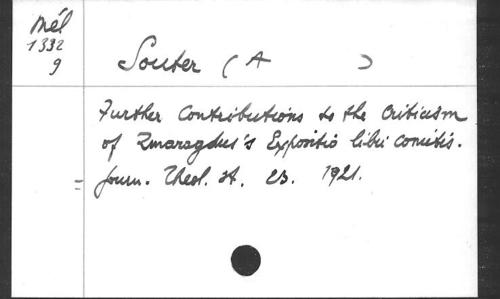 Mél
1332
9
Souter (A )
Further Contributions to the Criticism
of Zmaragdus's Expositio libri comitis.
= Journ. Theol. St. 23. 1921.